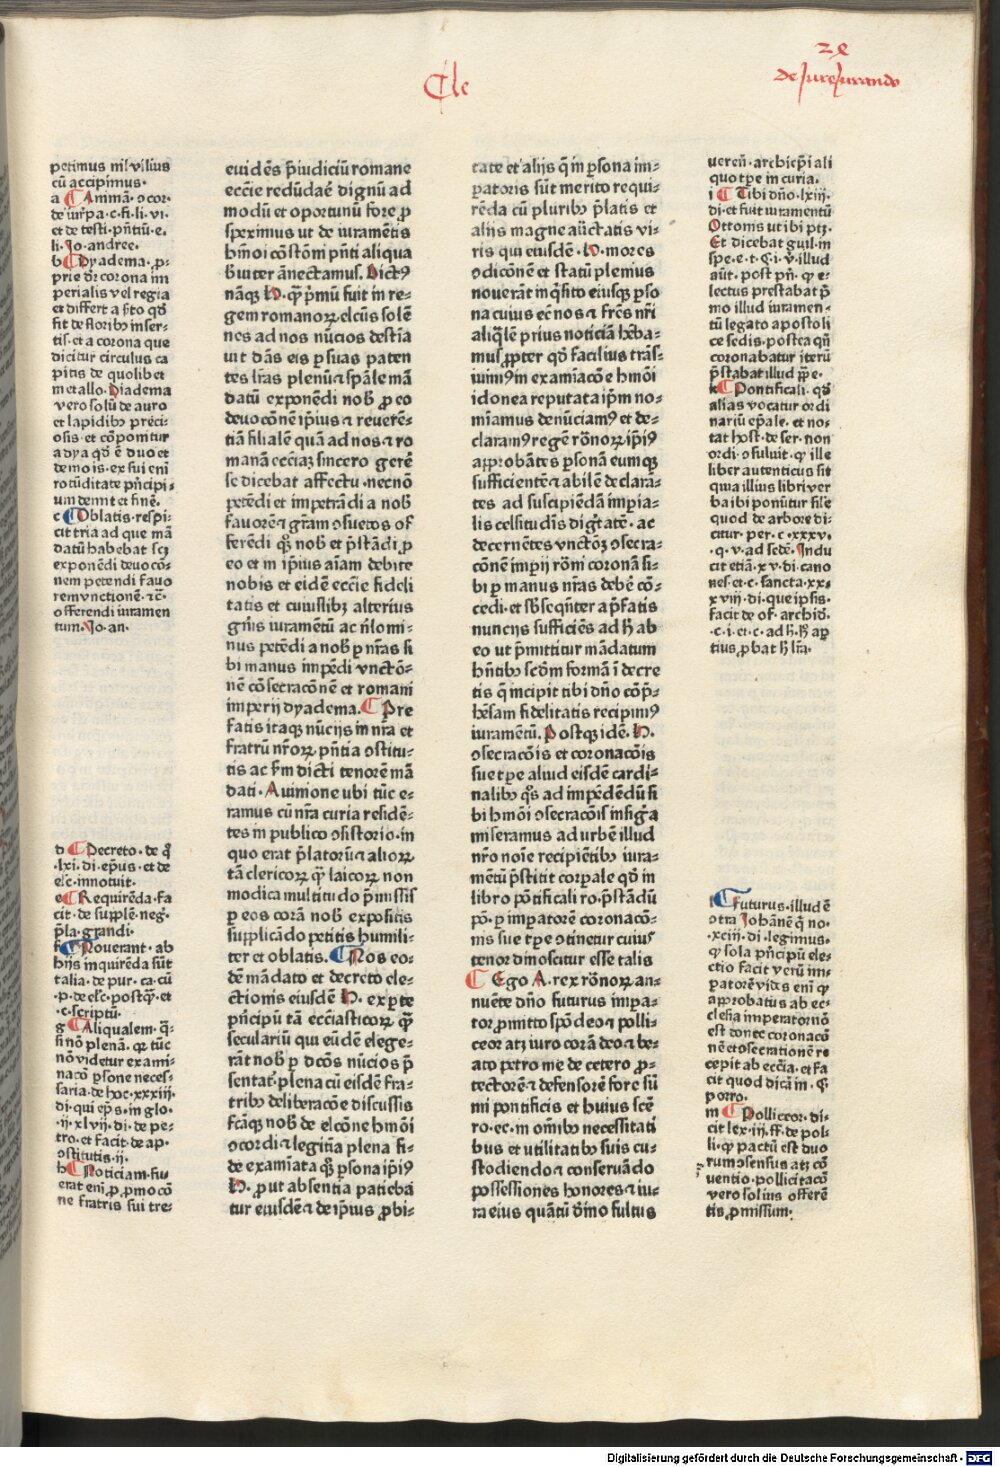 Cle
De Jurejurando
petimus nil vilius
cū accipimus.
a Animā. ɔcor.
de iur̄. pa. c. fi. li. vi.
et de testi. pn̄tiū. e.
li. Jo. andree.
b Dyadema. ꝓ-
prie dr̄ corona im
perialis vel regia
et differt a ſ̄to qd̄
fit de floribꝰ inser-
tis. et a corona que
dicitur circulus ca
pitis de quolibet
metallo. Diadema
vero solū de auro
et lapidibꝰ preci-
osis. et cōponitur
a dya qd̄ ē duo et
demois. ex sui eni
rotūditate pn̄cipi-
um demit et finē.
c Oblatis. respi-
cit tria ad que mā
datū habebat scꝫ
exponēdi deuocō-
nem petendi fauo
rem vnctionē. ⁊c̄.
offerendi iuramen
tum. Jo. an.
d Decreto. de q̄
.lxi. di. ep̄us. et de
elc̄. innotuit.
e Requirēda. fa
cit. de supplē. neḡ.
p̄la. grandi.
f Nouerant. ab
hijs inquirēda sūt
talia. de pur. ca. cū
.p. de elc̄. postqꝫ. et
.c. scriptū.
g Aliqualem. q̄-
si nō plenā. qꝛ tūc
nō videtur exami
nacō ꝑsone neces-
saria. de hoc. xxxiij.
di. qui ep̄s. in glo.
.ij. xlvij. di. de pe-
tro. et facit de ap.
ɔstitutis. ij.
h Noticiam. fu-
erat eni ꝓ ꝓmocō
ne fratris sui tre-
euidēs p̄iudiciū romane
ecc̄ie redūdae dignū ad
modū et oportunū fore ꝓ
speximus ut de iuramētis
hm̄oi cōstōm pn̄ti aliqua
bͥuiter ānectamus. Dictꝰ
nāqꝫ H. qꝫ p̄mū fuit in re-
gem romanoꝝ elcūs solē
nes ad nos nūcios destīa
uit dās eis ꝑ suas paten
tes lr̄as plenū ⁊ spāle mā
datū exponēdi nob̄ ꝓ eo
deuocōnē ip̄ius ⁊ reuerē-
tiā filialē quā ad nos ⁊ ro
manā ecc̄iaꝫ sincero gerē
se dicebat affectu. necnō
petēdi et impetrādi a nob̄
fauorē ⁊ gr̄am ɔsuetos of
ferēdi qꝫ nob̄ et p̄stādi ꝓ
eo et in ip̄ius aīam debite
nobis et eidē ecc̄ie fideli
tatis et cuiuslibꝫ alterius
gn̄is iuramētū ac nīlomi-
nus petēdi a nob̄ ꝑ nr̄as si
bi manus impēdi vnctō-
nē cōsecracōnē et romani
imperij dyadema. Pre
fatis itaqꝫ nūcijs in nr̄a et
fratrū nr̄oꝝ pn̄tia ɔstitu-
tis ac fm̄ dicti tenorē mā
dati. Auimone ubi tūc e-
ramus cū nr̄a curia residē-
tes in publico ɔsistorio. in
quo erat p̄latorū ⁊ alioꝝ
tā clericoꝝ qꝫ laicoꝝ non
modica multitudo p̄missis
ꝑ eos corā nob̄ expositis
supplicādo petitis humili-
ter et oblatis. Nos eo-
dē mādato et decreto ele-
ctionis eiusdē H. ex pte
pn̄cipū tā ecc̄iasticoꝝ qꝫ
seculariū qui eūdē elege-
rāt nob̄ ꝑ dc̄os nūcios p̄
sentat. plena cū eisdē fra-
tribꝰ deliberacōe discussis
fcāqꝫ nob̄ de elcōne hm̄oi
ɔcordi ⁊ legitīa plena fi-
de examīata qꝫ ꝑsona ip̄iꝰ
H. ꝓut absentia patiebā
tur eiusdē ⁊ de ip̄ius ꝓbi-
tate et alijs q̄ in ꝑsona im-
ꝑatoris sūt merito requi-
rēda cū pluribꝰ p̄latis et
alijs magne auc̄tatis vi-
ris qui eiusdē. H. mores
ɔdicōnē et statū plenius
nouerāt inq̄sito eiusqꝫ ꝑso
na cuius ec̄ nos ⁊ fr̄es nr̄i
aliq̄lē prius noticiā hēba-
mus ꝓpter qd̄ facilius trās-
iuimꝰ in examīacōe hm̄oi
idonea reputata ip̄m no-
miamus denūciamꝰ et de-
claramꝰ regē rōnoꝝ ip̄iꝰ
approbātes ꝑsonā eumqꝫ
sufficientē ⁊ abilē declarā-
tes ad suscipiēdā imꝑia-
lis celsitudīs diḡtatē. ac
decernētes vnctōꝫ ɔsecra-
cōnē imꝑij rōni coronā si-
bi ꝑ manus nr̄as debē cō-
cedi. et sb̄seqn̄ter a p̄fatis
nuncijs sufficiēs ad h̄ ab
eo ut p̄mittitur mādatum
hn̄tibꝰ scdm formā ī decre
tis q̄ incipit tibi dn̄o cōp̄-
hēsam fidelitatis recipimꝰ
iuramētū. Postqꝫ idē. H.
ɔsecracōis et coronacōis
sue tꝑe aliud eisdē cardi-
nalibꝰ qꝫs ad impēdēdū si
bi hm̄oi ɔsecracōis insiḡia
miseramus ad urbē illud
nr̄o noīe recipiētibꝰ iura-
mētū p̄stitit corꝑale qd̄ in
libro pōtificali ro. p̄stādū
pō. ꝑ imꝑatorē coronacō-
nis sue tꝑe ɔtinetur cuiuſ
tenor dinoscitur esse talis
Ego A. rex rōnoꝝ an-
nuēte dn̄o futurus imꝑa-
tor ꝓmitto spōdeo ⁊ polli-
ceor atꝫ iuro corā deo ⁊ be-
ato petro me de cetero ꝓ-
tectorē ⁊ defensorē fore sū
mi pontificis et huius scē
ro. ec. in oīnibꝰ necessitati
bus et utilitatibꝰ suis cu-
stodiendo ⁊ conseruādo
possessiones honores ⁊ iu-
ra eius quātū dīno fultus
ueren̄. archiep̄i ali
quo tꝑe in curia.
i Tibi dn̄o. lxiij.
di. et fuit iuramentū
Ottonis ut ibi ptꝫ.
Et dicebat guil. in
spe. e. t. §. i. v̄. illud
aūt. post pn̄. qꝫ e-
lectus prestabat p̄
mo illud iuramen-
tū legato apostoli
ce sedis. postea qn̄
coronabatur iterū
p̄stabat illud pp̄e.
k Pontificali. qd̄
alias vocatur ordi
nariū ep̄ale. et no-
tat host. de ser. non
ordi. ɔsuluit. qꝫ ille
liber autenticus sit
quia illius libri ver
ba ibi ponūtur sile
quod de arbore di-
citur. per. c. xxxv.
.q. v. ad sedē. Indu
cit etiā. xv. di. cano
nes. et c. sancta. xx-
xviij. di. que ipsis.
facit de of. archid̄.
.c. i. et. c. ad h̄. h̄ ap
tius ꝓbat h̄ lr̄a.
l Futurus. illud ē
ɔtra Johānē qꝫ no.
.xciij. di. legimus.
qꝫ sola pn̄cipū ele-
ctio facit verū im-
ꝑatorē vides eni qꝫ
approbatus ab ec-
clesia imperator nō
est donec coronacō
nē et ɔsecrationē re
cepit ab ecc̄ia. et fa
cit quod dicā in. §.
porro.
m Polliceor. di-
cit lex. iij. ff. de pol-
li. qꝫ pactū est duo
rum ɔsensus atꝫ cō
uentio. pollicitacō
vero solius offerē
tis ꝓmissum.
Digitalisierung gefördert durch die Deutsche Forschungsgemeinschaft - DFG